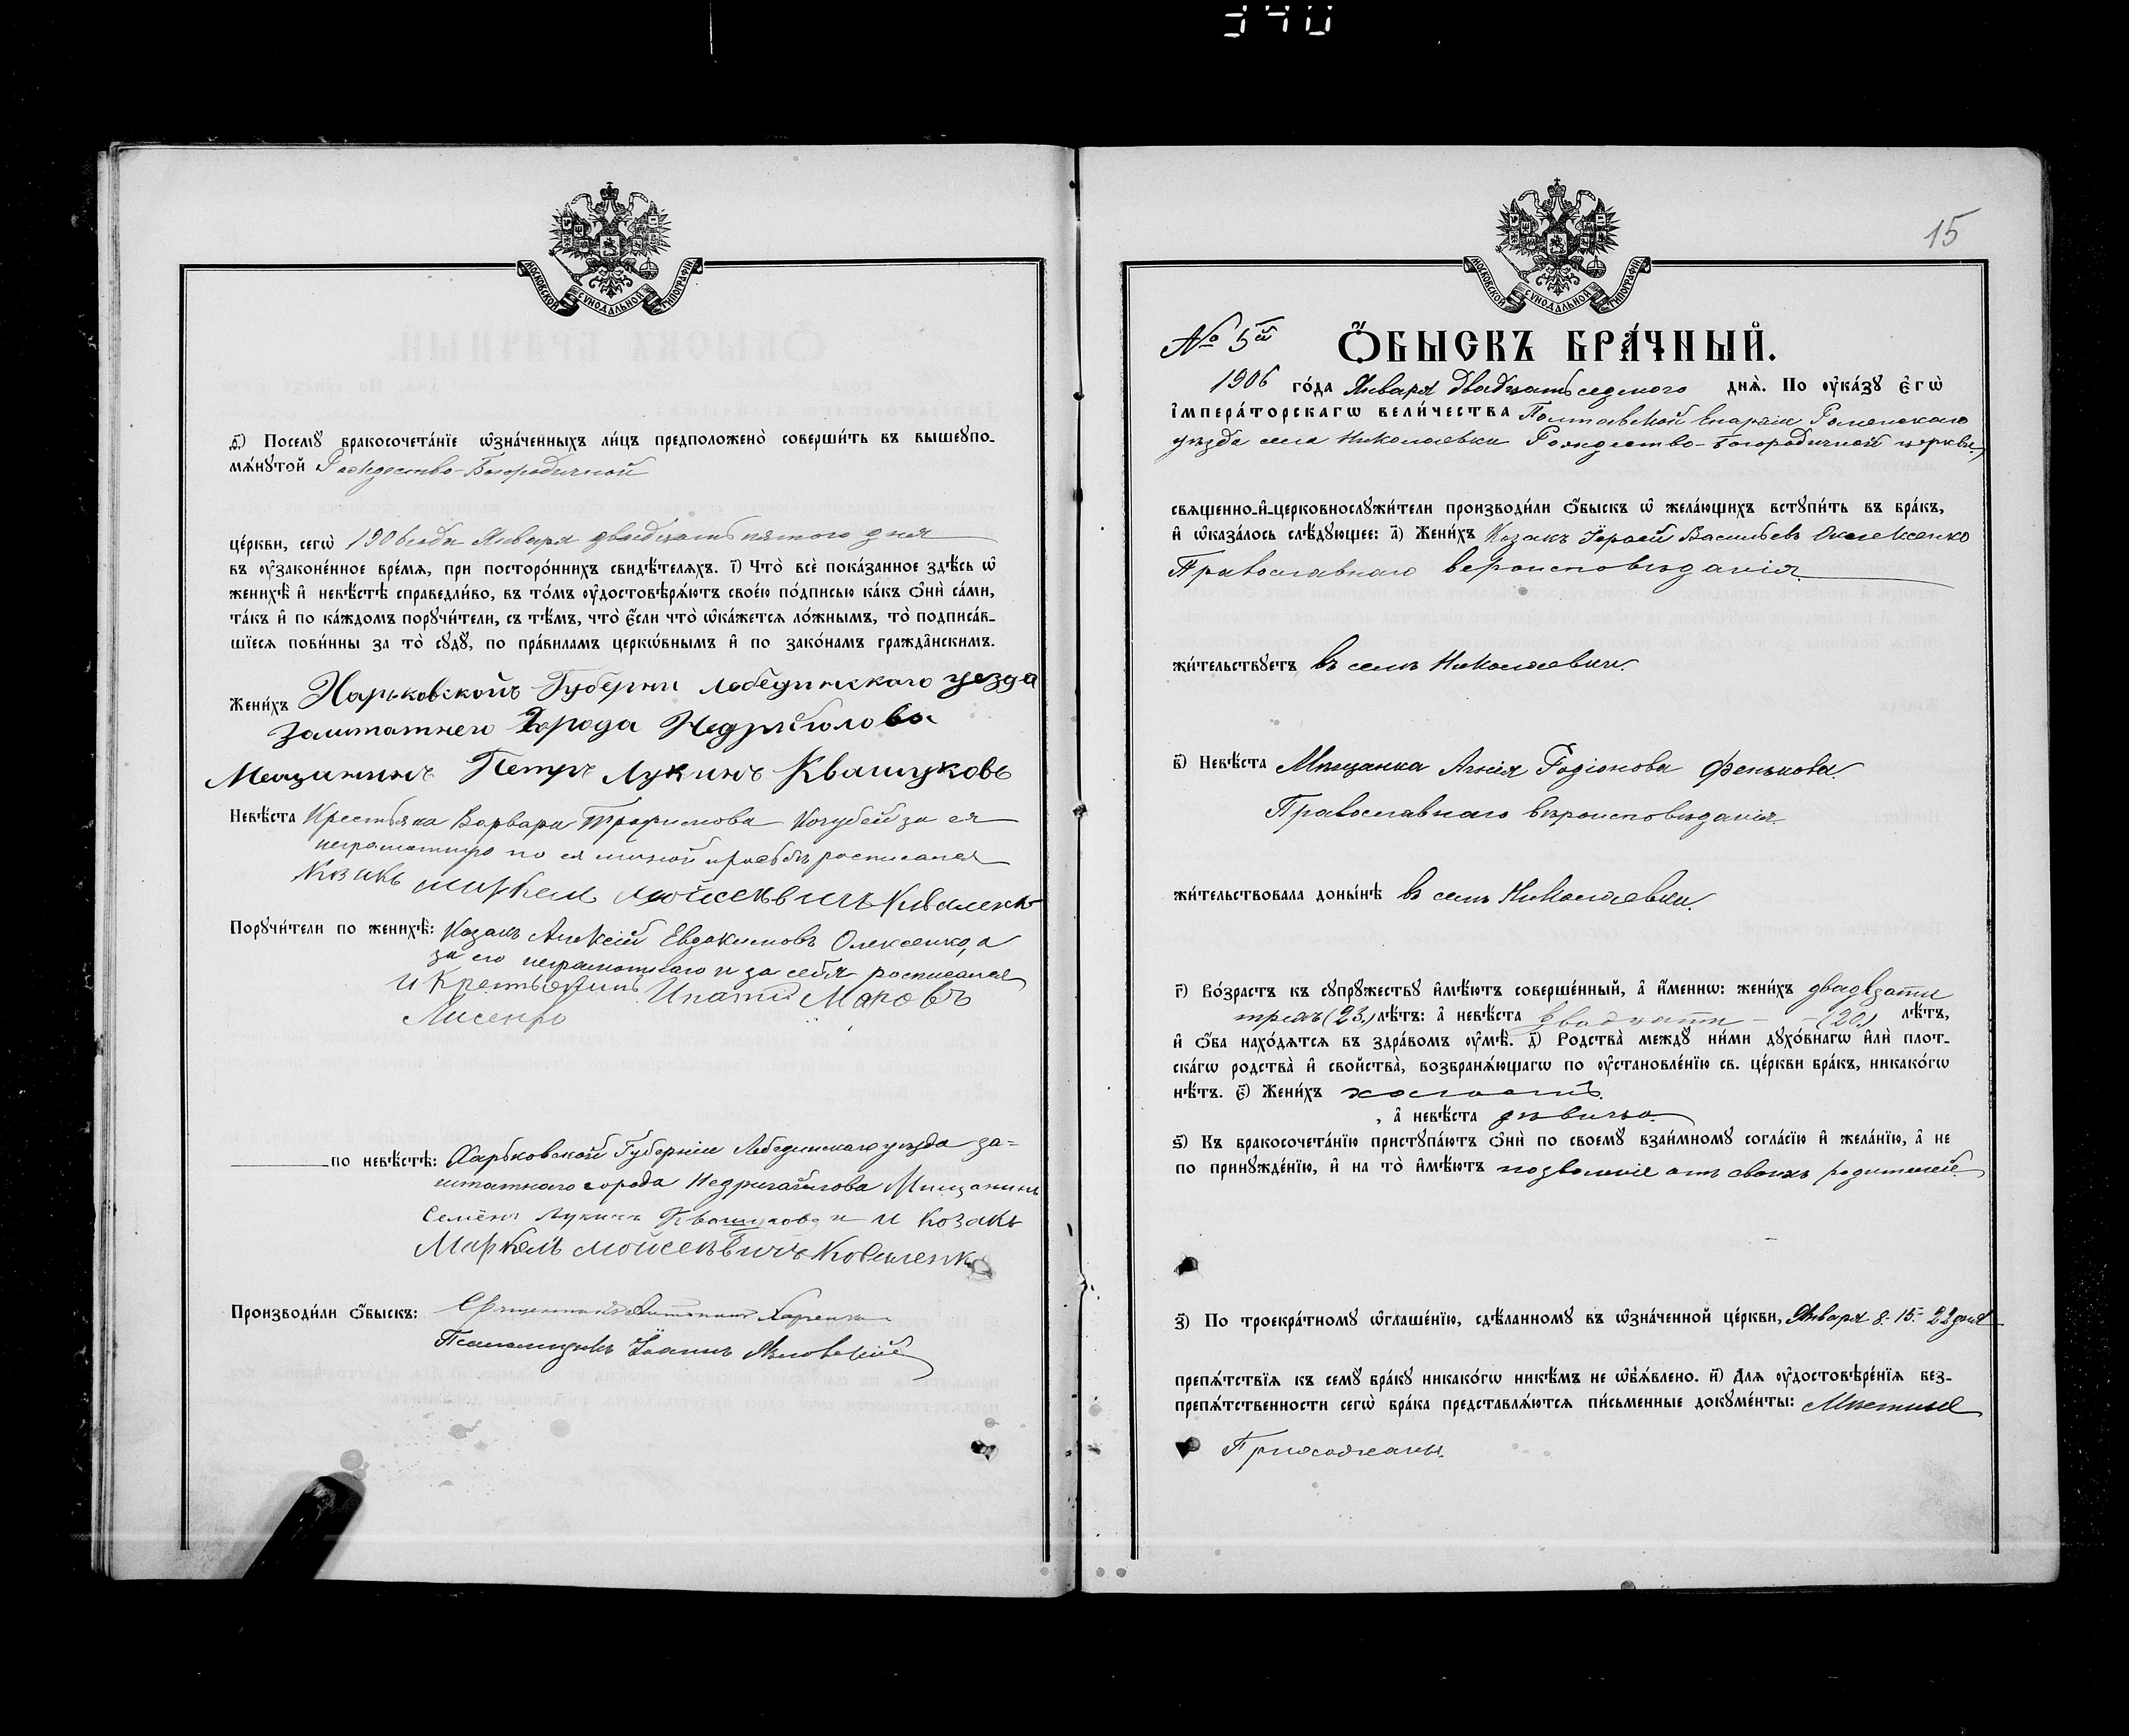 МОСКОВСКОЙ СУНОДАЛЬНОЙ ТИПОГРАФІИ
ѳ҃) Посемꙋ̀ бракосочета́нїе ѡ҆зна́ченныхъ ли́цъ предположено̀ соверши́ть въ вышеꙋпо-
мѧ́нꙋтой Рождество-Богородичной
це́ркви, сегѡ̀ 1906 года Января двадцать пятого дня
въ ᲂу҆законе́нное вре́мѧ, при посторо́ннихъ свидѣ́телѧхъ. і҃) Что̀ всѐ пока́занное здѣ́сь ѡ҆
женихѣ̀ и҆ невѣ́стѣ справедли́во, въ то́мъ ᲂу҆достовѣрѧ́ютъ свое́ю по́дписью ка́къ ѻ҆нѝ са́ми,
та́къ и҆ по ка́ждомъ порꙋчи́тели, съ тѣ́мъ, что̀ є҆́сли что̀ ѡ҆ка́жетсѧ ло́жнымъ, то̀ подписа́в-
шїесѧ пови́нны за то̀ сꙋдꙋ̀, по пра́виламъ церкѡ́внымъ и҆ по зако́намъ гражда̂нскимъ.
Жени́хъ Харьковскойъ Губерни Лебединскаго уезда
Заштатнего Города
Мещининъ Петръ Лукинъ Квашуковъ
Невѣ́ста Крестьяка Варвара Трофимова Кочубей за ея
неграмотную по ея личной прозбѣ росписался
Козакъ Маркелъ Мойсеѣвичъ Коваленко
Порꙋчи́тели по женихѣ̀: Козакъ Алексій Евдокимовъ Олексенко, а
за его неграмотнаго и за себя росписался
и Крестьянинъ Ипатій Маровъ
Лисенко
по невѣ́стѣ: Харьковской Губерніи Лебединскаго уѣзда за=
штатнаго города Недригайлова Мищанинъ
Семёнъ Лукинъ Квашуковъ и Козакъ
Маркелъ Мойсеѣвичъ Коваленко
Производи́ли ѻ҆́быскъ: Священникъ Антоній
Псаломщикъ Іоаннъ
15
МОСКОВСКОЙ СУНОДАЛЬНОЙ ТИПОГРАФІИ
№ 5й ѺБЫСКЪ БРА́ЧНЫЙ.
1906 го́да Января двадцать седмого днѧ̀. По ᲂу҆ка́зꙋ є҆гѡ̀
і҆мпера́торскагѡ вели́чества Полтавской Епархіи Роменскаго
уѣзда села Николаевки Рождество-Богородичной церкви,
свѧщенно-и҆-церковнослꙋжи́тели производи́ли ѻ҆́быскъ ѡ҆ жела́ющихъ встꙋпи́ть въ бра́къ,
и҆ ѡ҆каза́лось слѣ́дꙋющее: а҃) Жени́хъ Козакъ Васильевъ Олексенко
Православнаго вероисповѣданія
жи́тельствꙋетъ въ селѣ Николаевки.
в҃) Невѣ́ста Мѣщанка Агнія Родіонова Фенькова
Православнаго вѣроисповѣданія
жи́тельствовала доны́нѣ въ селѣ Николаевки.
г҃) Во́зрастъ къ сꙋпрꙋ́жествꙋ и҆мѣ́ютъ соверше́нный, а҆ и҆́меннѡ: жени́хъ двадцати
трехъ (23.) лѣ́тъ: а҆ невѣ́ста двадцати - - (20.) лѣ́тъ,
и҆ ѻ҆́ба нахо́дѧтсѧ въ здра́вомъ ᲂу҆мѣ̀. д҃) Родства̀ междꙋ̀ ни́ми дꙋхо́внагѡ и҆лѝ плот-
ска́гѡ родства̀ и҆ свойства̀, возбранѧ́ющагѡ по ᲂу҆становле́нїю св. це́ркви бра́къ, никако́гѡ
нѣ́тъ. є҃) Жени́хъ холостъ.
, а҆ невѣ́ста дѣвица
ѕ҃) Къ бракосочета́нїю пристꙋпа́ютъ ѻ҆нѝ по своемꙋ̀ взаи́мномꙋ согла́сїю и҆ жела́нїю, а҆ не
по принꙋжде́нїю, и҆ на то̀ и҆мѣ́ютъ позволеніе отъ своихъ родителей.
з҃) По троекра́тномꙋ ѡ҆глаше́нїю, сдѣ́ланномꙋ въ ѡ҆зна́ченной це́ркви, Января 8-15-22 дня
препѧ́тствїѧ къ семꙋ̀ бра́кꙋ никако́гѡ никѣ́мъ не ѡ҆б̾ѧ́влено. и҃) Длѧ ᲂу҆достовѣре́нїѧ без-
препѧ́тственности сегѡ̀ бра́ка представлѧ́ютсѧ пи́сьменные докꙋме́нты: Мѣстные
Прихожаны.